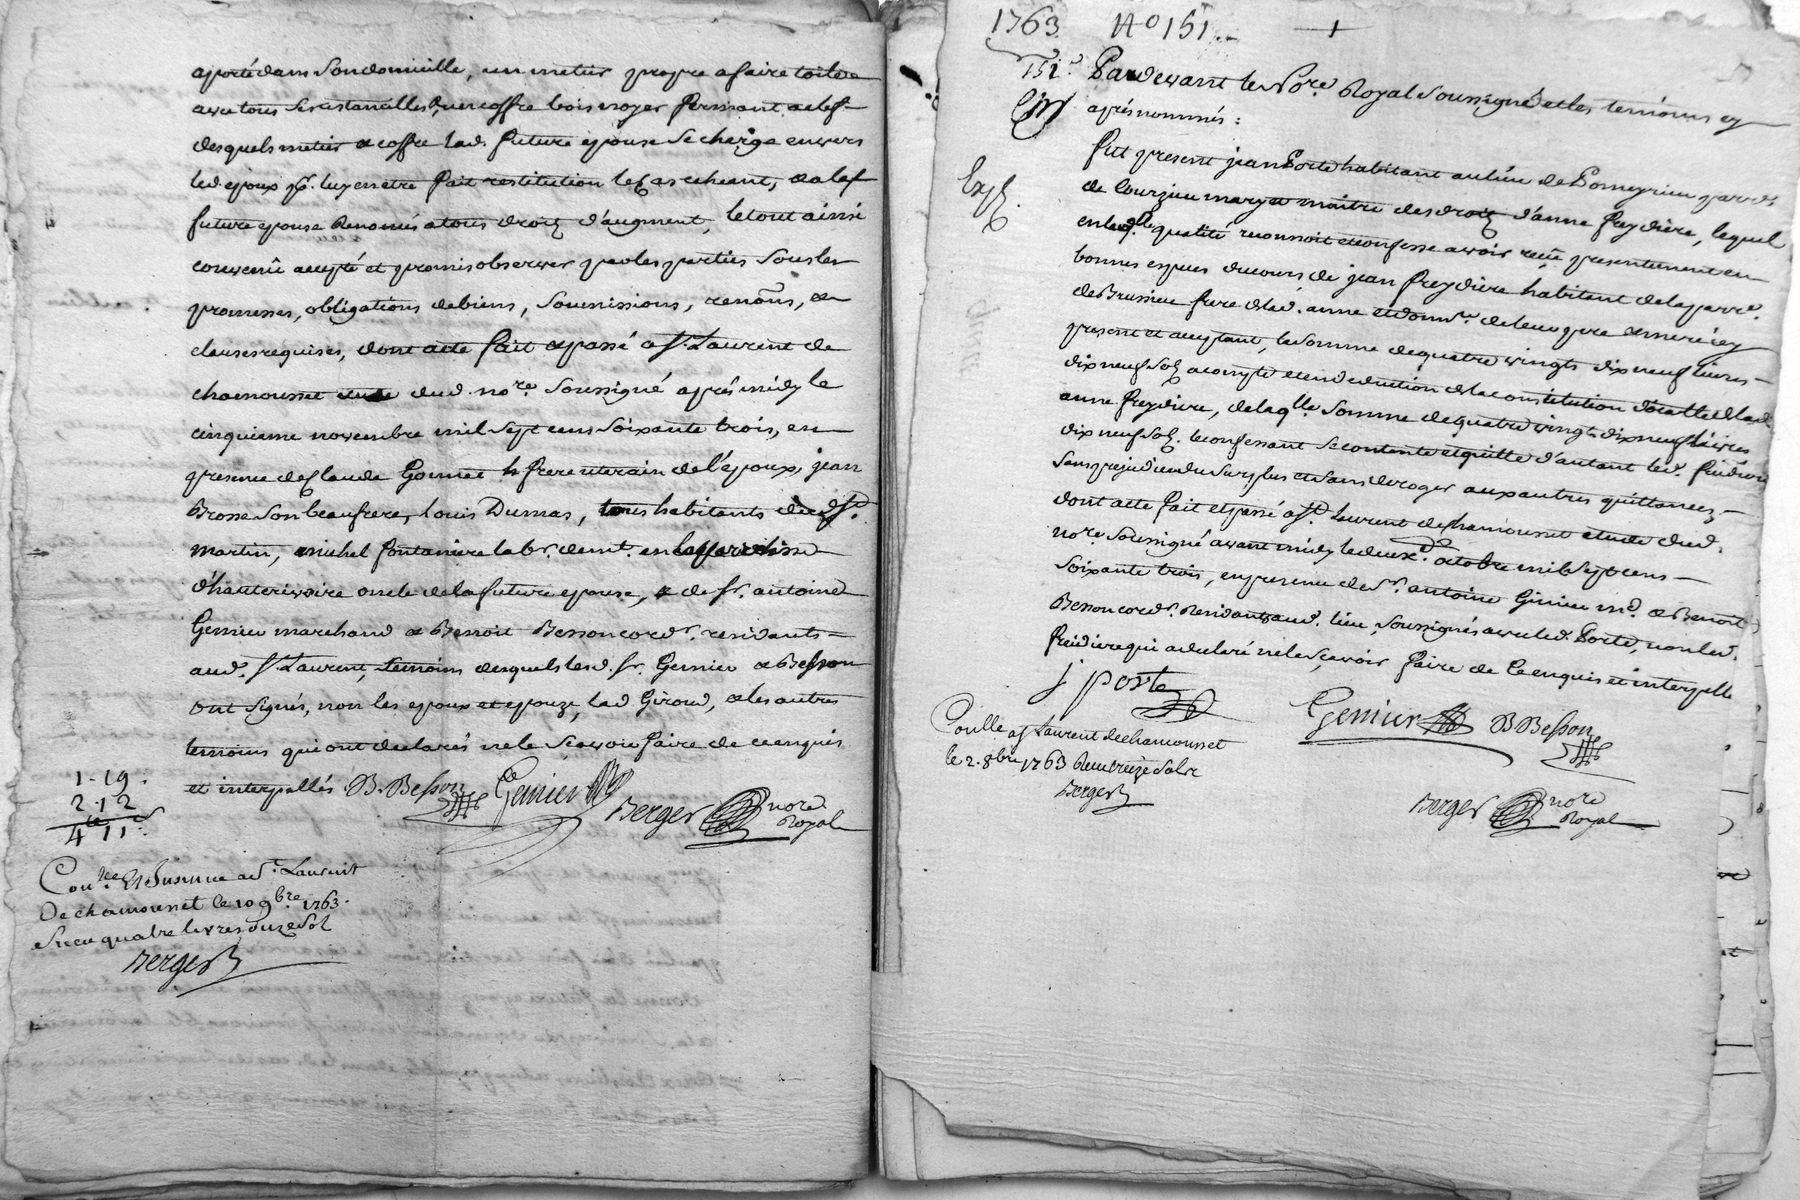 aporté dans son domicille, un metier propre a faire toile
avec tous ses astancilles, & un coffre bois noyer fermant a clef
desquels metier & coffre lad. future epouse se charge envers
led. epoux pr. luy en etre fait restitution le cas echeant, & a lad.
future epouse renoncé a tous droits d'augment, le tout ainsi
convenû accepté et promis observer par les parties sous les
promesses, obligations de biens, soumissions, renôns, &
clauses requises, dont acte fait & passé a St. Laurent de
chamousset etude dud. nore. soussigné aprés midy le
cinquieme novembre mil sept cens soixante trois, en
presence de Claude Gonnet frere uterain de l'epoux, jean
Brosse son beaufrere, Louis Dumas, tous habitants dud. St.
martin, michel fontaniere labr. demt. en la parroisse
d'hauterivoire oncle de la future epouse, & de sr. antoine
Genier marchand & Benoit Besson cordr. residants
aud. St. Laurent, temoins desquels lesd. sr. Genier & Besson
ont signés, non les epoux et epouze, lad. Giroud, & les autres
temoins qui ont declarés ne le scavoir faire de ce enquis
et interpellés. B. Besson Genier Berger nore Royal
1-19.
2.12
4 11
Conlle. Et Insinué a St. Laurent
De chamousset le 10 9bre 1763.
Recu quatre livres onze sol
Berger
1763 No 151.
151e. Pardevant le Nore. Royal soussigné et les temoins cy
aprés nommés:
fut present jean Porte habitant au lieu de Pomeyrieu parr.
Exp.
de Courzieu mary et maitre des droits d'anne freydiere, lequel
en lad. qualité reconnoit et confesse avoir reçu presentement en
bonnes especes du cours de jean freydiere habitant de la parre.
de Brussieu frere de lad. anne et donnre. de leur pere & mere icy
present et acceptant, la somme de quatre vingts dix neuf livres
dix neuf sols acompte et en deduction de la constitution dotalle de lad.
anne freydiere, de laqlle somme de quatre vingts dix neuf livres
dix neuf sols. le confessant se contente et quitte d'autant led. freidiere
sans prejudice du surplus et sans deroger aux autres quittances
dont acte fait et passé a St. Laurent de chamousset etude dud.
nore. soussigné avant midy le deuxe. octobre mil sept cens
soixante trois, en presence de sr. antoine Genier md. & Benoit
Besson cordr. residants aud. lieu, soussignés avec led. Porte, non led.
freidiere qui a declaré ne le scavoir faire de ce enquis et interpellé
j porte Genier B Besson
Conlle a St Laurent de chamousset
le 2. 8bre 1763 Recu treize sols
Berger
Berger nore Royal